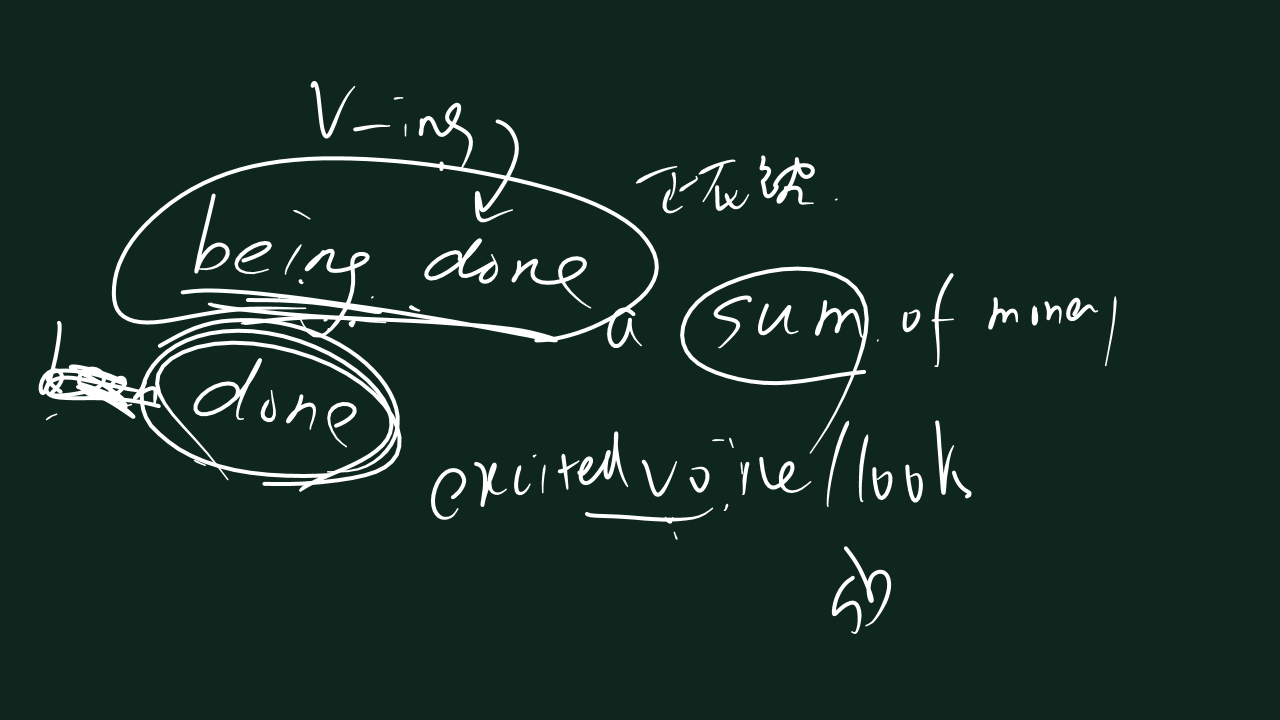 V-ing
being done 正在被
a sum of money
done
excited voice/look
sb